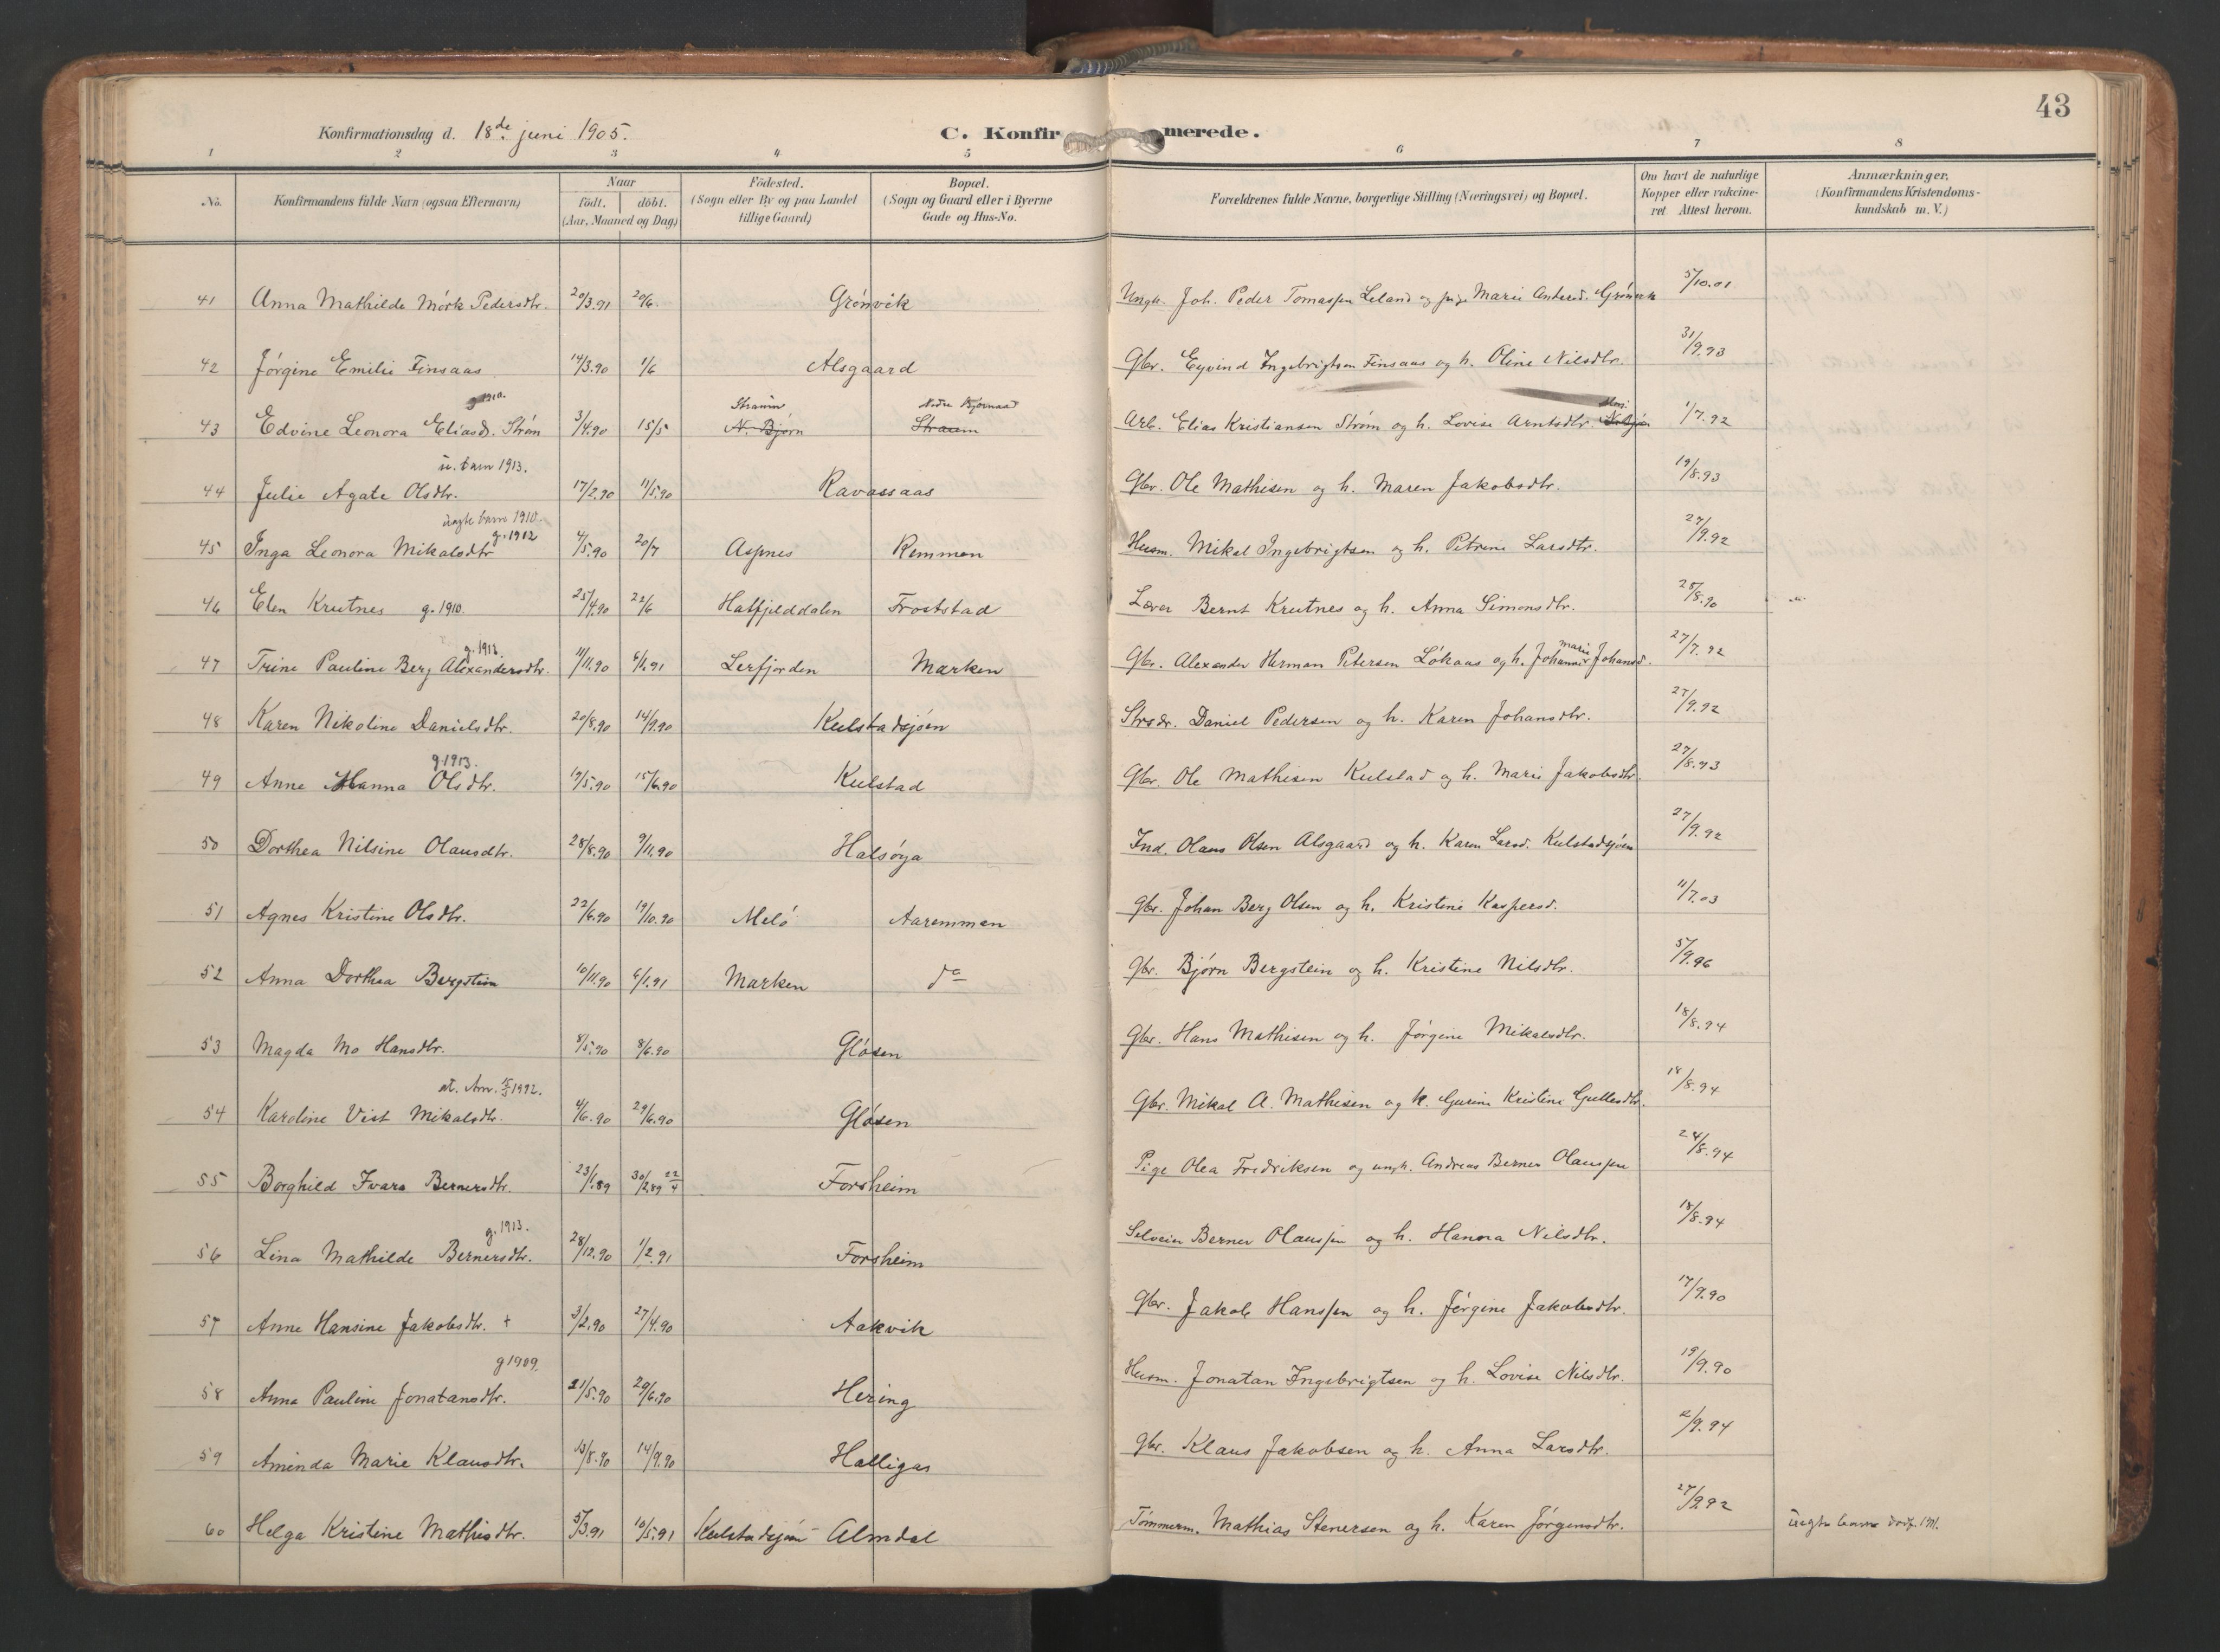 43
Konfirmationsdag d. 18de juni 1905.
C. Konfirmerede.
1 2 3 4 5 6 7 8
No. Konfirmandens fulde Navn (ogsaa Efternavn) Naar født. døbt. (Aar, Maaned og Dag) Fødested. (Sogn eller By og paa Landet tillige Gaard) Bopæl. (Sogn og Gaard eller i Byerne Gade og Hus-No. Forældrenes fulde Navne, borgerlige Stilling (Næringsvei) og Bopæl. Om havt de naturlige Kopper eller vakcineret Attest herom. Anmærkninger, (Konfirmandens Kristendomskundskab m. V.)
41 Anna Mathilde Mörk Pedersdtr. 20/3.91 20/6. Grønvik Ungk. Joh. Peder Tomassen Leland og pige Marie Andersd. Grønvik 5/10.01
42 Jørgine Emilie Finsaas 14/3.90 1/6 Alsgaard Gbr. Eyvind Ingebrigtsen Finsaas og h. Oline Nilsdtr. 31/9.93
g 1910. Straum Nedre Bjørnaad
43 Edvine Leonora Eliasd. Strøm 3/4.90 15/5 N. Bjørn Straum Arb. Elias Kristiansen Strøm og h. Lovise Arntsdtr. 1/7.92
u. barn 1913.
44 Julie Agate Olsdtr. 17/2.90 11/5.90 Ravassaas Gbr. Ole Mathisen og h. Maren Jakobsdtr. 19/8.93
uægte barn 1910. g. 1912
45 Inga Leonora Mikalsdtr 4/5.90 20/7 Aspnes Remmen Husm. Mikal Ingebrigtsen og h. Petrine Larsdtr. 27/9.92
46 Elen Krutnes g. 1910. 25/4.90 22/6 Hatfjelddalen Froststad Lærer Bernt Krutnes og h. Anna Simonsdtr. 25/8.90
g. 1913.
47 Trine Pauline Berg Alexandersdtr. 11/11.90 6/1.91 Lerfjorden Marken Gbr. Alexander Herman Petersen Lökaas og h. Johanne Marie Johansd. 27/7.92
48 Karen Nikoline Danielsdtr. 20/8.90 14/9.90 Kulstadsjøen Strsdr. Daniel Pedersen og h. Karen Johansdtr. 27/9.92
g. 1913.
49 Anne Hanna Olsdtr. 19/5.90 15/6.90 Kulstad Gbr. Ole Mathisen Kulstad og h. Marie Jakobsdtr. 27/8.93
50 Dorthea Nilsine Olausdtr. 28/8.90 9/11.90 Halsøya Ind. Olaus Olsen Alsgaard og h. Karen Larsd. Kulstadsjøen 27/9.92
51 Agnes Kristine Olsdtr. 22/6.90 19/10.90 Melö Aaremmen Gbr. Johan Berg Olsen og h. Kristine Kaspersd. 11/7.03
52 Anna Dorthea Bergstein 10/11.90 6/1.91 Marken do Gbr. Bjørn Bergstein og h. Kristine Nilsdtr. 5/9.96
53 Magda Mo Hansdtr. 8/5.90 8/6.90 Gløsen Gbr. Hans Mathisen og h. Jørgine Mikalsdtr. 18/8.94
at. Am. 15/5 1992.
54 Karoline Vist Mikalsdtr. 4/6.90 29/6.90 Gløsen Gbr. Mikal A. Mathisen og h. Gurine Kristine Gullesdtr. 18/8.94
55 Borghild Ivara Bernersdtr. 23/1.89 30/2.89 22/4 Forsheim Pige Olea Fredriksen og ungk. Andreas Berner Olaussen 24/8.94
g. 1913.
56 Lina Mathilde Bernersdtr. 28/12.90 1/2.91 Forsheim Selveier Berner Olaussen og h. Hanna Nilsdtr. 18/8.94
57 Anne Hansine Jakobsdtr. + 3/2.90 27/4.90 Aakvik Gbr. Jakob Hanssen og h. Jørgine Jakobsdtr. 17/9.90
g 1909.
58 Anna Pauline Jonatansdtr. 21/5.90 29/6.90 Hering Husm. Jonatan Ingebrigtsen og h. Lovise Nilsdtr. 19/9.90
59 Aminda Marie Klausdtr. 13/8.90 14/9.90 Halligas Gbr. Klaus Jakobsen og h. Anna Larsdtr. 2/9.94
60 Helga Kristine Mathisdtr. 5/3.91 10/5.91 Kulstadsjøen Almdal Tømmerm. Mathias Stenersen og h. Karen Jørgensdtr. 27/9.92 uægte barn 1911.